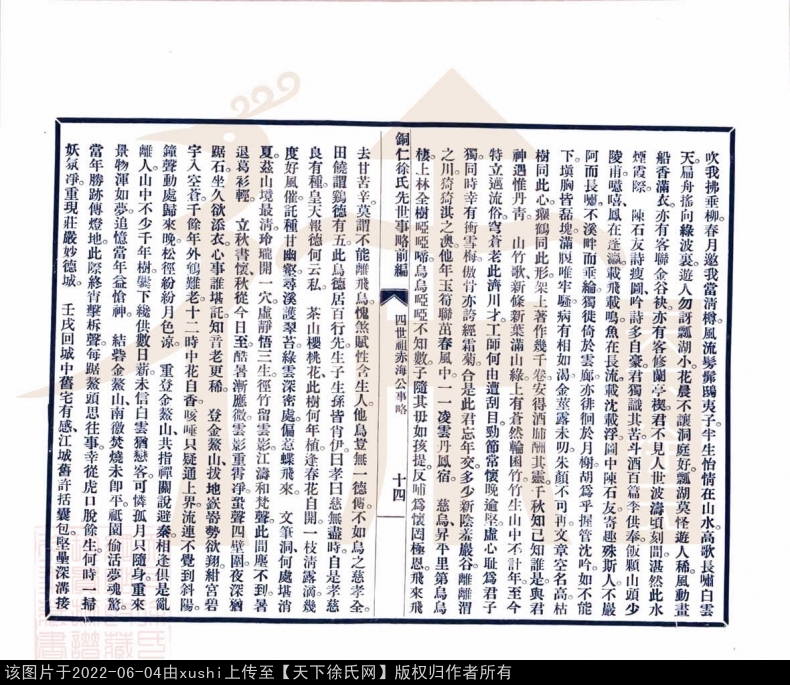 吹我拂垂柳春月邀我當清樽風流髣髴鴟夷子半生怡情在山水高歌長嘯白雲
天扁舟搖向綠波裏遊人勿訝瓢湖小花晨不讓洞庭好瓢湖莫怪遊人稀風動畫
船香滿衣亦有客聯金谷袂亦有客修蘭亭楔君不見人世波濤頃刻間湛然此水
煙霞際。陳石友詩瘦圖吟詩多自豪君獨識其苦斗酒百篇李供奉飯顆山頭少
陵甫噫嘻鳳在蓬瀛載飛載鳴魚在長流載沈載浮圖中陳石友寄趣殊斯人不巖
阿而長嘯不溪畔而垂綸獨徙倚於雲廊亦徘徊於月榭胡爲乎握管沈吟如不能
下塡胸皆磊塊滿腹唯牢騷病有相如渴金莖露未叨朱顏不可再文章空名高枯
樹同此心癯鶴同此形架上著作幾千卷安得酒脯酬其靈千秋知己知誰是與君
神遇惟丹靑。山竹歌新條新葉滿山綠上有蒼然輪囷竹竹生山中不計年至今
特立邁流俗穹蒼老此濟川才工師何由遭刮目勁節常懷晚逾堅虛心耻爲君子
獨同時幸有衝雪梅傲骨亦誇經霜菊合是此君忘年交多少新陰羞巖谷離離渭
之川猗猗淇之澳他年玉筍聯萬春風中一一凌雲丹鳳宿。慈烏昇平里第烏烏
棲上林全樹啞啞啼烏烏啞啞不知數子隨其毋如孩提反哺爲懷罔極恩飛來飛
銅仁徐氏先世事略前編
四世祖赤海公事略
十四
去甘苦辛莫謂不能離飛鳥愧煞賦性含生人他鳥豈無一德儁不如烏之慈孝全
田饒謂鷄德有五此烏德居百行先生子生孫皆肖伊曰孝曰慈無盡時自是孝慈
良有種皇天報德何云私。茶山櫻桃花此樹何年植逢春花自開一枝清露滴幾
度好風催託種甘幽壑尋溪護翠苔綠雲深密處偏惹蝶飛來。文筆洞何處堪消
夏茲山境最清玲瓏開一穴虛靜悟三生徑竹留雲影江濤和梵聲此間塵不到暑
退葛衫輕。立秋書懷秋從今日至酷暑漸應微雲影重霄淨蛩聲四壁圍夜深猶
踞石坐久欲添衣心事誰堪託知音老更稀。登金鰲山拔地嶔嵜勢欲翔紺宮碧
宇入空蒼千餘年外鶴難老十二時中花自香咳唾只疑通上界流連不覺到斜陽
鐘聲動處歸來晚松徑紛紛月色涼。重登金鰲山共指禪關說避秦相逢俱是亂
離人山中不少千年樹鬢下纔供數日薪未信白雲猶戀客可憐孤月只隨身重來
景物渾如夢追憶當年益愴神。結砦金鰲山南徼焚燒未卽平祗園偷活夢魂驚
當年勝跡傳燈地此際終宵擊柝聲每踞鰲頭思往事幸從虎口脫餘生何時一掃
妖氛凈重現莊嚴妙德城。壬戌回城中舊宅有感江城舊許括囊包堅壘深溝接
该图片于2022-06-04由xushi上传至【天下徐氏网】版权归作者所有